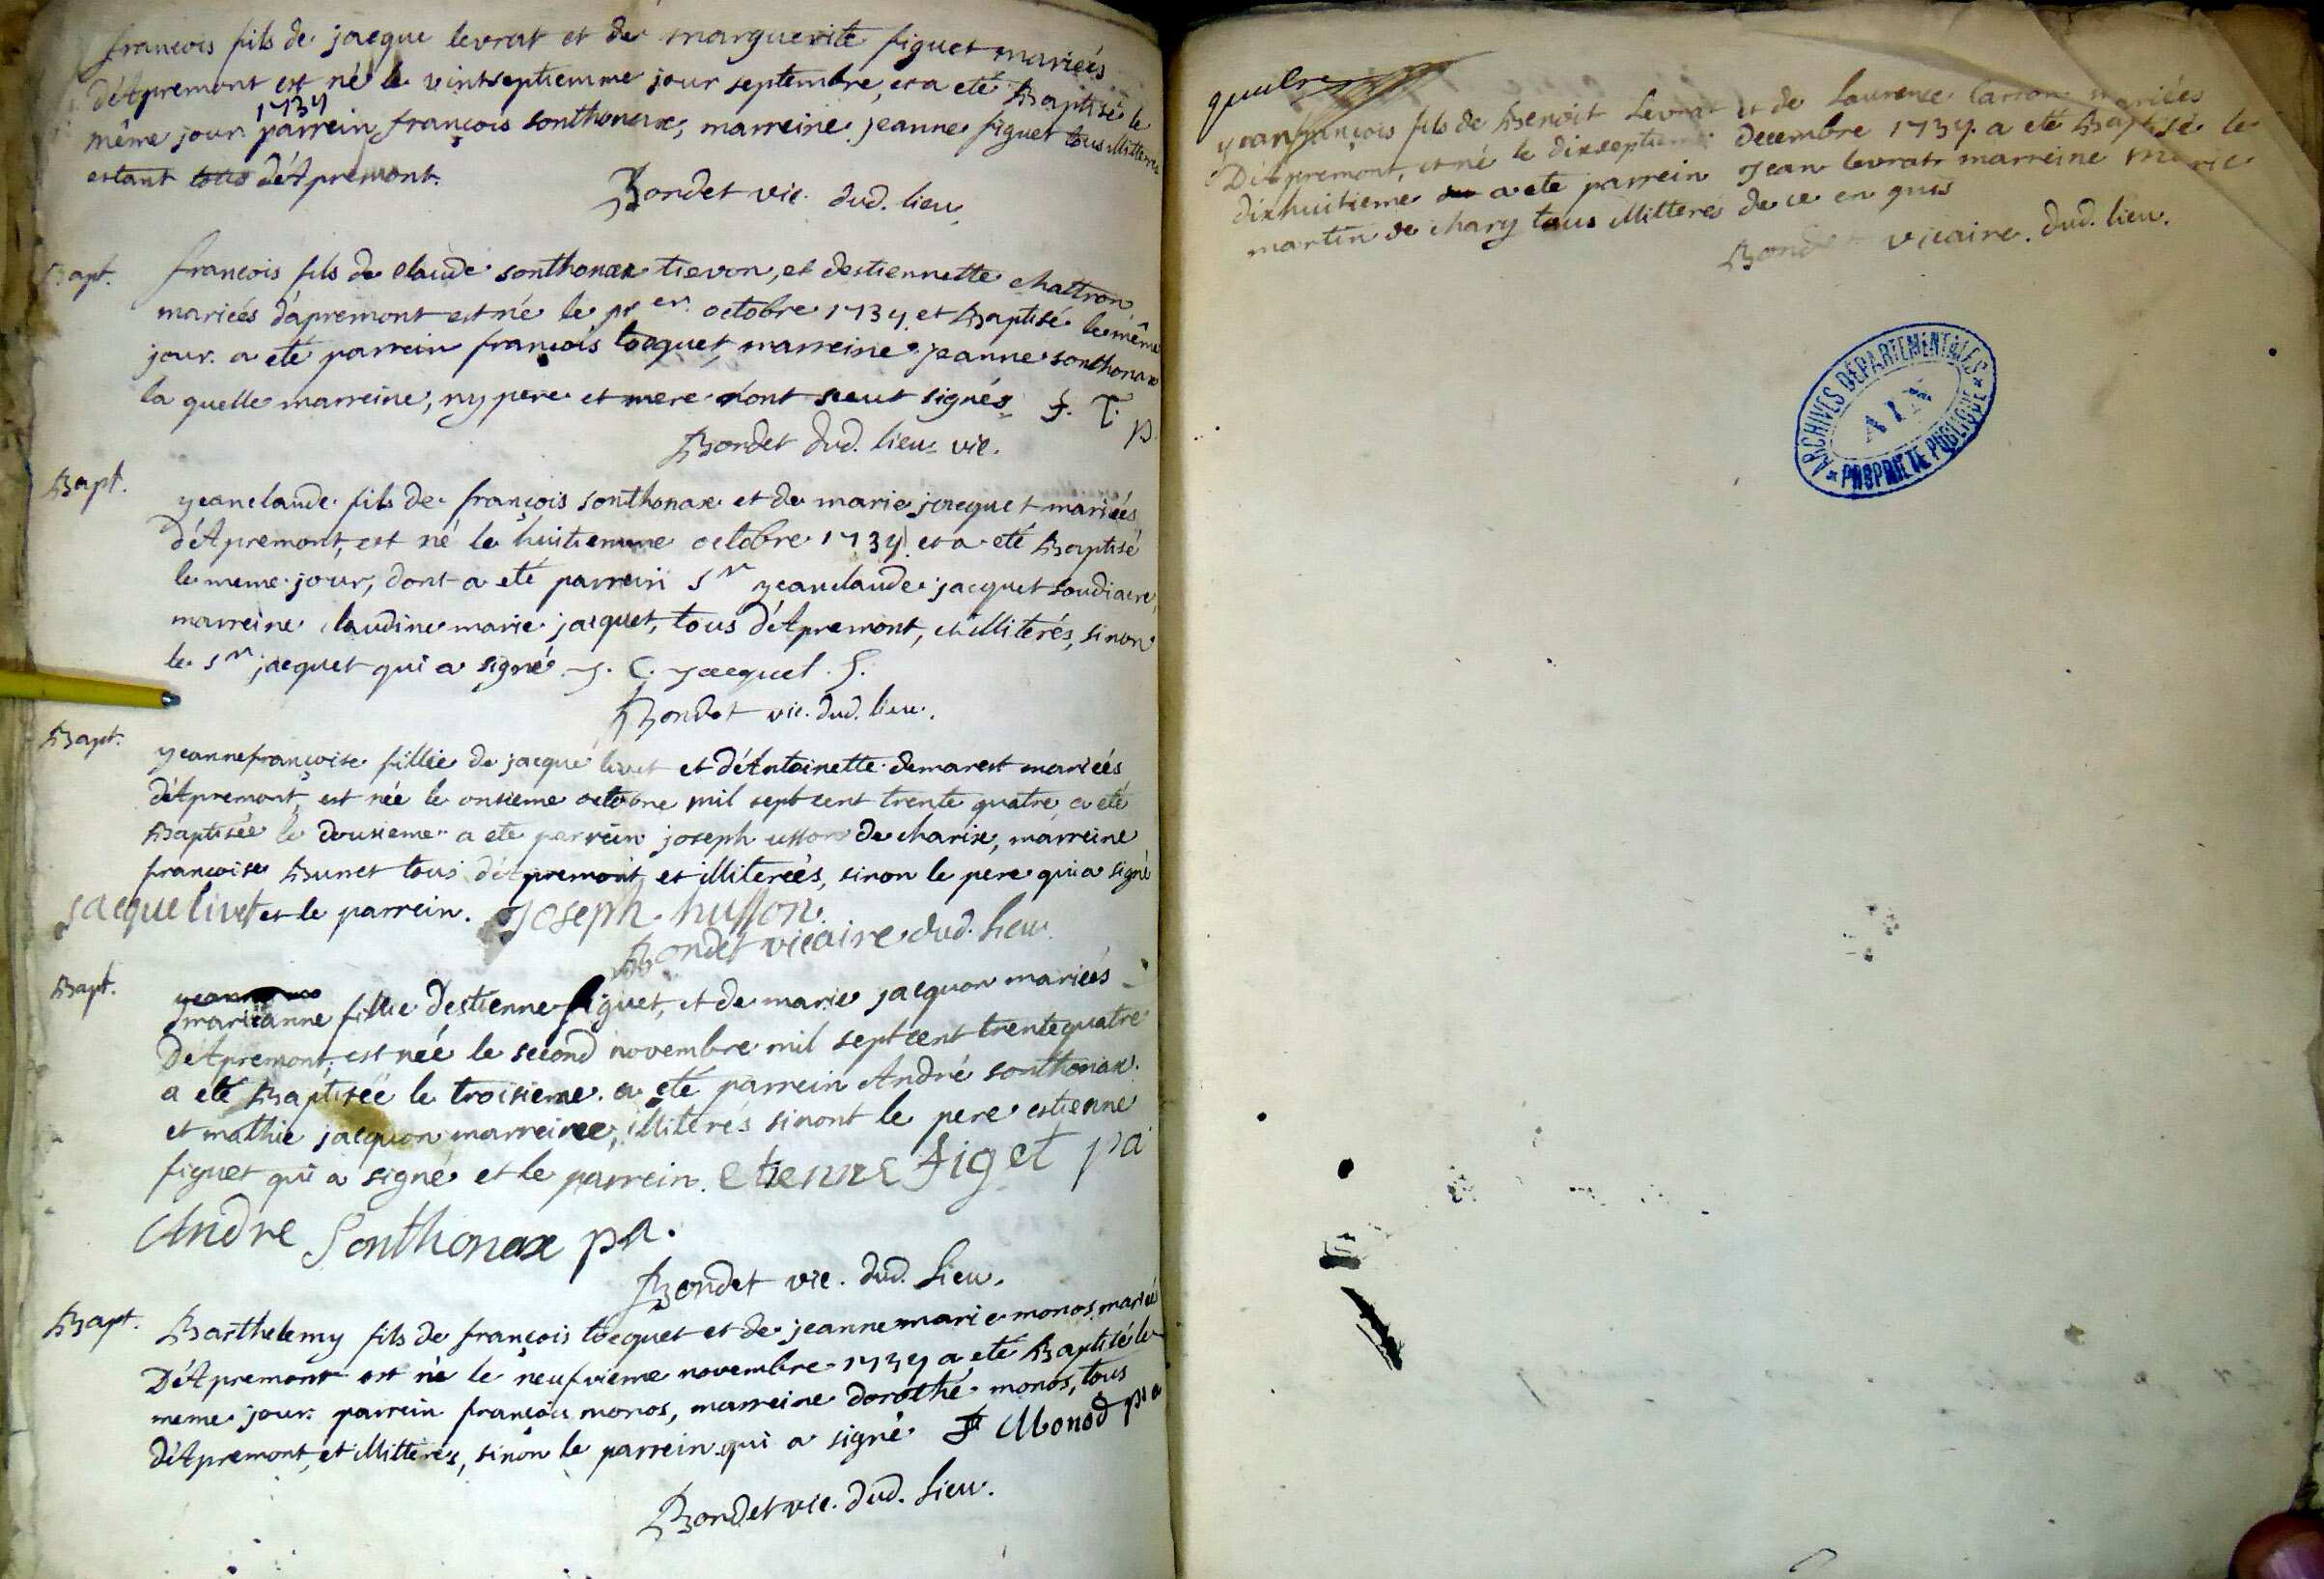 francois fils de jacque levrat et de marguerite figuet mariéés
d'Apremont est né le vintseptiemme jour septembre, et a eté Baptisé le
1734
même jour parrein françois sonthonax, marreine jeanne figuet tous illiteres
estant tous d'Apremont.
Bondet vic. dud. lieu
Bapt.
francois fils de claude sonthonax tievon, et destiennette chattron
mariéés d'apremont est né le pr er. octobre 1734. et Baptisé le même
jour. a eté parrein francois tocquet, marreine jeanne sonthonax
la quelle marreine, ny pere et mere n'ont sceut signés f. T. p.
Bondet dud. lieu vic.
Bapt.
yeanclaude fils de françois sonthonax et de marie jacquet mariéés
d'Apremont, est né le huitiemme octobre 1734. et a eté Baptisé
le meme jour, dont a eté parrein sr yeanclaude jacquet soudiacre,
marreine claudine marie jacquet, tous d'Apremont, et illiterés, sinon
le sr jacquet qui a signé J. C. Jacquet S.
Bondet vic. dud. lieu.
Bapt.
yeannefrançoise fillie de jacque livet et d'Antoinette demarest mariéés
d'Apremont, est née le onsieme octobre mil sept cent trente quatre a eté
Baptiséé le dousieme a ete parrein joseph usson de charix, marreine
francoise Bunet tous d'Apremont et illiteréés, sinon le pere qui a signé
jacque livet et le parrein. Joseph. husson
Bondet vicaire dud. lieu
Bapt.
mariéanne fillie destienne figuet, et de marie jacquon mariéés
D'Apremont, est néé le second novembre mil sept cent trentequatre
a eté Baptiséé le troisieme. a eté parrein André sonthonax.
et mathie jacquon marreinee, illiterés sinont le pere estienne
figuet qui a signé et le parrein. etienne figet pa
Andre Sonthonax pa.
Bondet vic. dud. lieu.
Bapt.
Barthelemy fils de françois tocquet et de jeannemarie monos mariéé
D'Apremont est né le neufvieme novembre 1734 a eté Baptisé le
meme jour. parrein françois monos, marreine dorothé monos, tous
d'Apremont, et illiterés, sinon le parrein qui a signé F Monod pa
Bondet vic. dud. lieu.
yeanfrançois fils de Benoit Levrat et de Laurence Carron mariéés
D'Apremont, est né le dixseptieme decembre 1734. a eté Baptisé le
dixhuitieme a ete parrein Jean levrat marreine marie
martin de chary tous illiterés de ce en quis
Bondet vicaire. dud. lieu.
ARCHIVES DEPARTEMENTALES
AIN
* PROPRIETE PUBLIQUE *